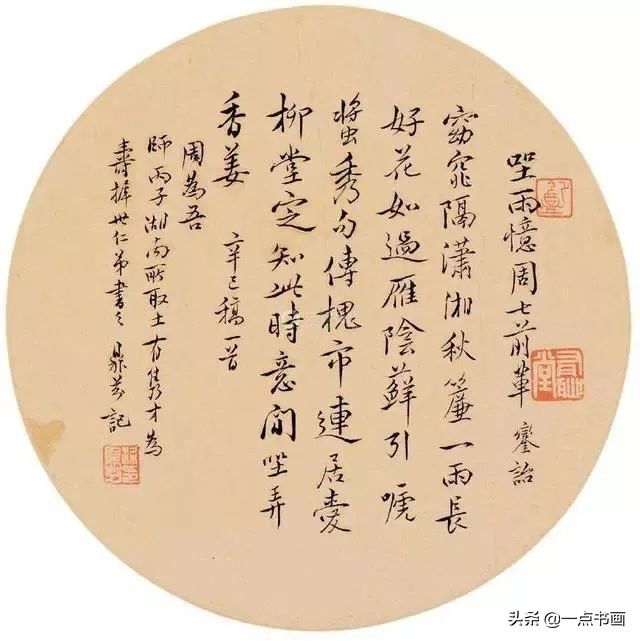 坐雨憶周七前輩 鑾詒
窈窕隔瀟湘秋簾一雨長
好花如過雁陰蘚引嗁
螿秀句傳槐市連居愛
柳堂定知此時意閒坐弄
香姜 辛巳稿一首
周為吾
師丙子湖南所取士有雋才為
壽 世仁弟書之 鼎芬記
头条 @一点书画